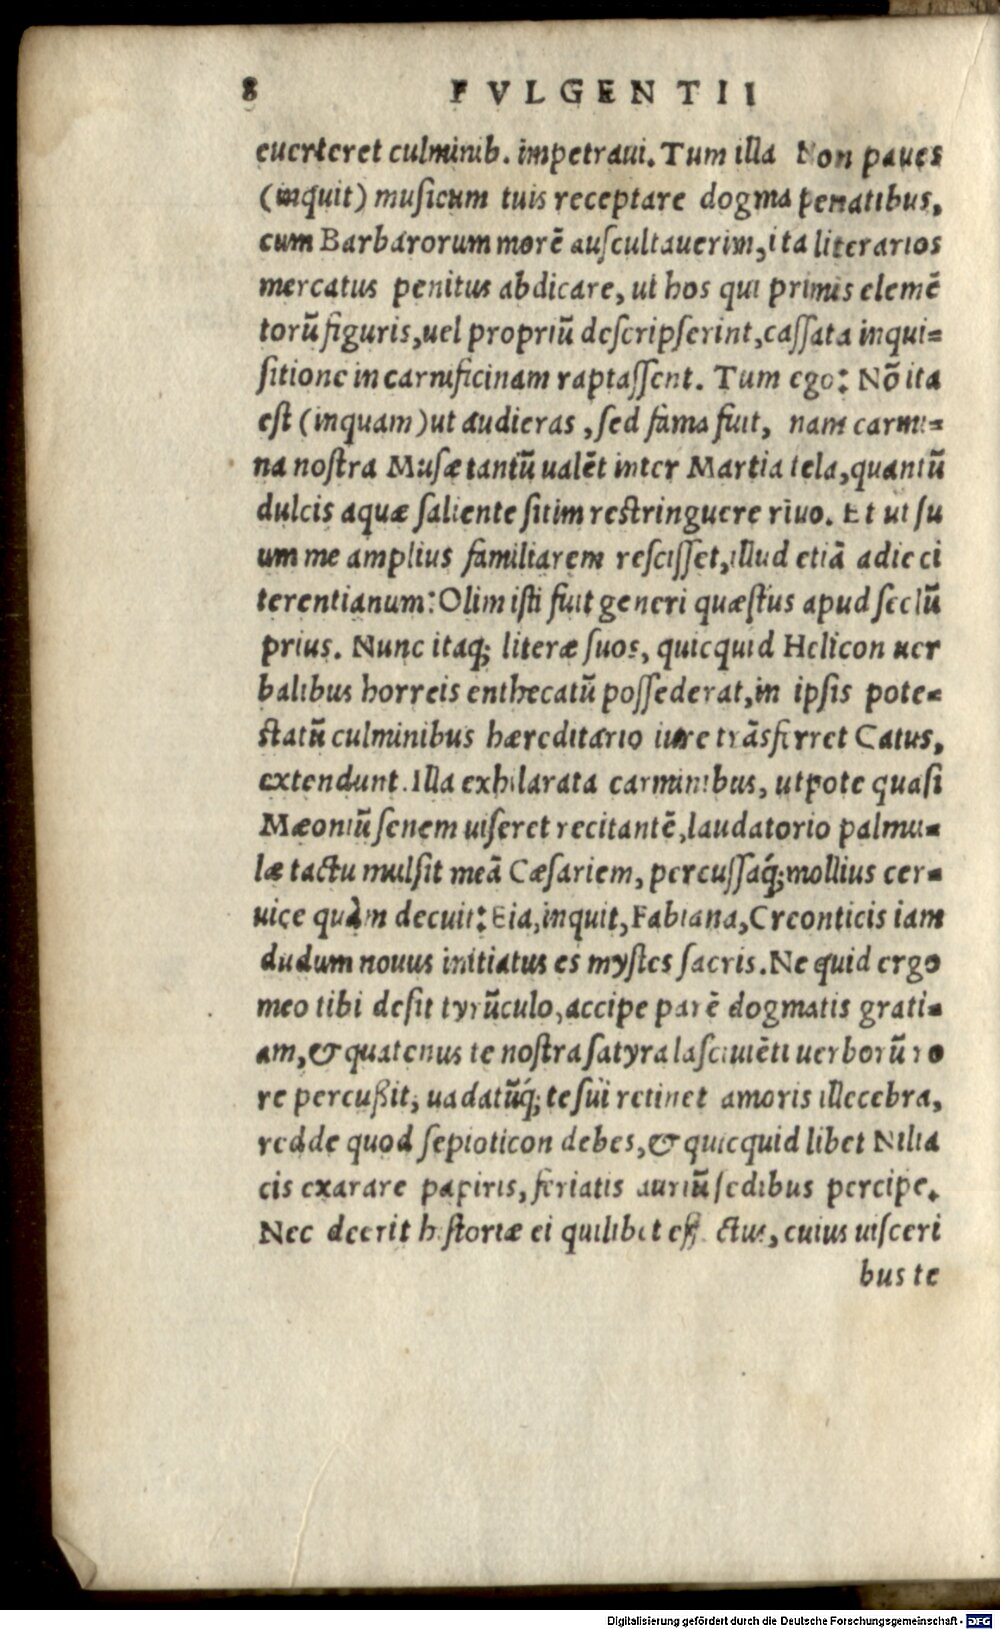 8 FVLGENTII
euerteret culminib. impetraui. Tum illa Non paues
(inquit) musicum tuis receptare dogma penatibus,
cum Barbarorum morē auscultauerim, ita literarios
mercatus penitus abdicare, ut hos qui primis elemē
torū figuris, uel propriū descripserint, cassata inqui=
sitione in carnificinam raptassent. Tum ego: Nō ita
est (inquam) ut audieras, sed fama fuit, nam carmi=
na nostra Musæ tantū ualēt inter Martia tela, quantū
dulcis aquæ saliente sitim restringuere riuo. Et ut su
um me amplius familiarem rescisset, illud etiā adieci
terentianum: Olim isti fuit generi quæstus apud seclū
prius. Nunc itaq; literæ suos, quicquid Helicon uer
balibus horreis enthecatū possederat, in ipsis pote=
statū culminibus hæreditario iure trāsferret Catus,
extendunt. Illa exhilarata carminibus, utpote quasi
Mæoniū senem uiseret recitantē, laudatorio palmu=
læ tactu mulsit meā Cæsariem, percussaq́; mollius cer=
uice quàm decuit: Eia, inquit, Fabiana, Creonticis iam
dudum nouus initiatus es mystes sacris. Ne quid ergo
meo tibi desit tyrūculo, accipe parē dogmatis grati=
am, & quatenus te nostra satyra lasciuiēti uerborū ro
re percußit, uadatūq́; te sui retinet amoris illecebra,
redde quod sepioticon debes, & quicquid libet Nilia
cis exarare papiris, feriatis auriū sedibus percipe.
Nec deerit historiæ ei quilibet effectus, cuius uisceri
bus te
Digitalisierung gefördert durch die Deutsche Forschungsgemeinschaft - DFG